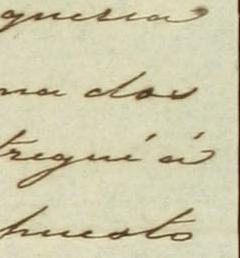 queria
na dos
tregué á
puesto